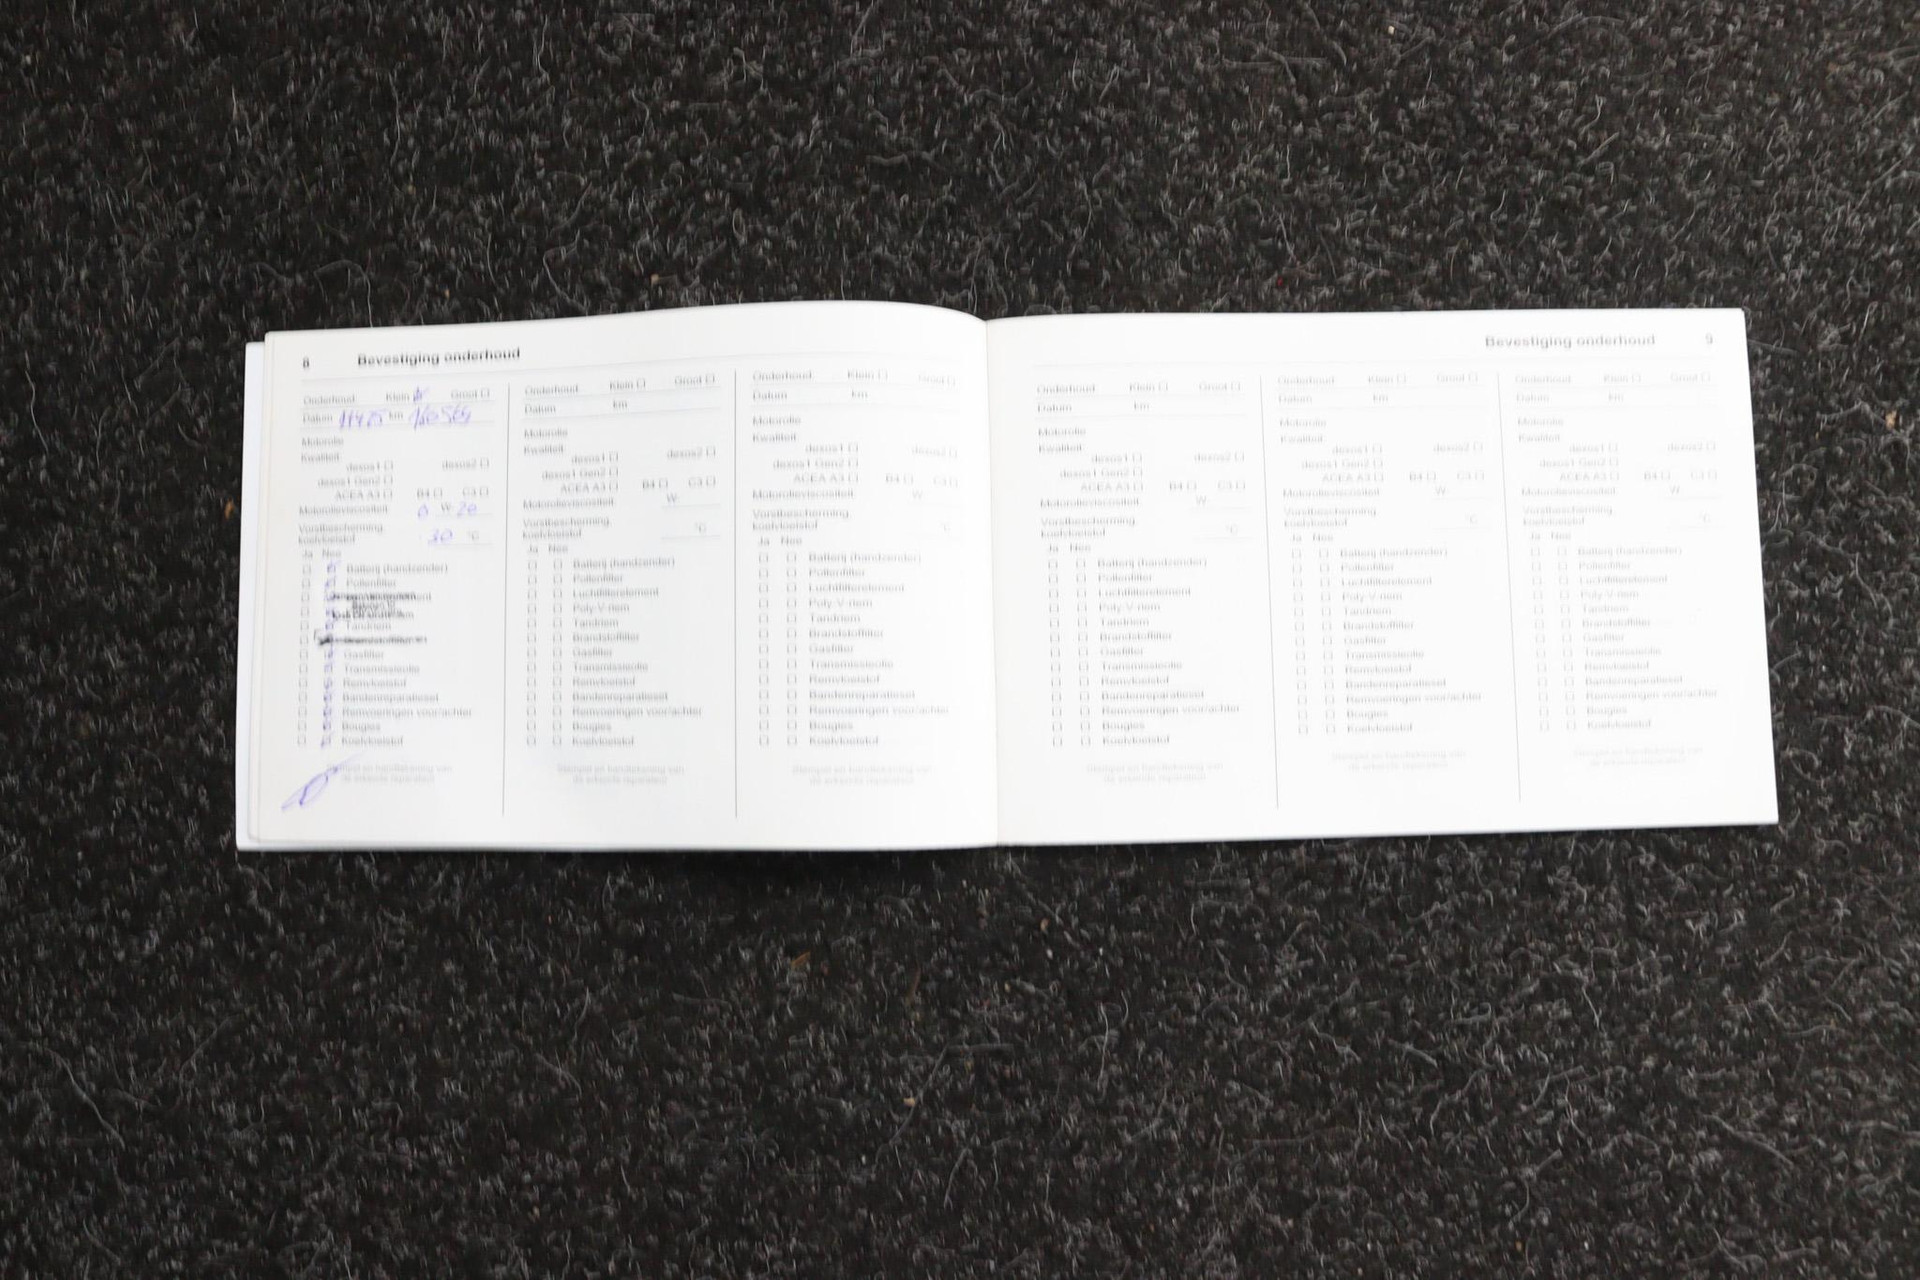 8 Bevestiging onderhoud
Onderhoud Klein ☐ Groot ☐
Datum km
Motorolie
Kwaliteit
dexos1 ☐ dexos2 ☐
dexos1 Gen2 ☐
ACEA A3 ☐ B4 ☐ C3 ☐
Motorolieviscositeit 0 W- 20
Vorstbescherming,
koelvloeistof 30 °C
Ja Nee
☐ Batterij (handzender)
☐ Pollenfilter
☐ Tandriem
☐ Gasfilter
☐ Transmissieolie
☐ Remvloeistof
☐ Bandenreparatieset
☐ Remvoeringen voor/achter
☐ Bougies
☐ Koelvloeistof
Stempel en handtekening van
de erkende reparateur
Onderhoud Klein ☐ Groot ☐
Datum km
Motorolie
Kwaliteit
dexos1 ☐ dexos2 ☐
dexos1 Gen2 ☐
ACEA A3 ☐ B4 ☐ C3 ☐
Motorolieviscositeit W-
Vorstbescherming,
koelvloeistof °C
Ja Nee
☐ ☐ Batterij (handzender)
☐ ☐ Pollenfilter
☐ ☐ Luchtfilterelement
☐ ☐ Poly-V-riem
☐ ☐ Tandriem
☐ ☐ Brandstoffilter
☐ ☐ Gasfilter
☐ ☐ Transmissieolie
☐ ☐ Remvloeistof
☐ ☐ Bandenreparatieset
☐ ☐ Remvoeringen voor/achter
☐ ☐ Bougies
☐ ☐ Koelvloeistof
Stempel en handtekening van
de erkende reparateur
Onderhoud Klein ☐ Groot ☐
Datum km
Motorolie
Kwaliteit
dexos1 ☐ dexos2 ☐
dexos1 Gen2 ☐
ACEA A3 ☐ B4 ☐ C3 ☐
Motorolieviscositeit W-
Vorstbescherming,
koelvloeistof °C
Ja Nee
☐ ☐ Batterij (handzender)
☐ ☐ Pollenfilter
☐ ☐ Luchtfilterelement
☐ ☐ Poly-V-riem
☐ ☐ Tandriem
☐ ☐ Brandstoffilter
☐ ☐ Gasfilter
☐ ☐ Transmissieolie
☐ ☐ Remvloeistof
☐ ☐ Bandenreparatieset
☐ ☐ Remvoeringen voor/achter
☐ ☐ Bougies
☐ ☐ Koelvloeistof
Stempel en handtekening van
de erkende reparateur
Bevestiging onderhoud 9
Onderhoud Klein ☐ Groot ☐
Datum km
Motorolie
Kwaliteit
dexos1 ☐ dexos2 ☐
dexos1 Gen2 ☐
ACEA A3 ☐ B4 ☐ C3 ☐
Motorolieviscositeit W-
Vorstbescherming,
koelvloeistof °C
Ja Nee
☐ ☐ Batterij (handzender)
☐ ☐ Pollenfilter
☐ ☐ Luchtfilterelement
☐ ☐ Poly-V-riem
☐ ☐ Tandriem
☐ ☐ Brandstoffilter
☐ ☐ Gasfilter
☐ ☐ Transmissieolie
☐ ☐ Remvloeistof
☐ ☐ Bandenreparatieset
☐ ☐ Remvoeringen voor/achter
☐ ☐ Bougies
☐ ☐ Koelvloeistof
Stempel en handtekening van
de erkende reparateur
Onderhoud Klein ☐ Groot ☐
Datum km
Motorolie
Kwaliteit
dexos1 ☐ dexos2 ☐
dexos1 Gen2 ☐
ACEA A3 ☐ B4 ☐ C3 ☐
Motorolieviscositeit W-
Vorstbescherming,
koelvloeistof °C
Ja Nee
☐ ☐ Batterij (handzender)
☐ ☐ Pollenfilter
☐ ☐ Luchtfilterelement
☐ ☐ Poly-V-riem
☐ ☐ Tandriem
☐ ☐ Brandstoffilter
☐ ☐ Gasfilter
☐ ☐ Transmissieolie
☐ ☐ Remvloeistof
☐ ☐ Bandenreparatieset
☐ ☐ Remvoeringen voor/achter
☐ ☐ Bougies
☐ ☐ Koelvloeistof
Stempel en handtekening van
de erkende reparateur
Onderhoud Klein ☐ Groot ☐
Datum km
Motorolie
Kwaliteit
dexos1 ☐ dexos2 ☐
dexos1 Gen2 ☐
ACEA A3 ☐ B4 ☐ C3 ☐
Motorolieviscositeit W-
Vorstbescherming,
koelvloeistof °C
Ja Nee
☐ ☐ Batterij (handzender)
☐ ☐ Pollenfilter
☐ ☐ Luchtfilterelement
☐ ☐ Poly-V-riem
☐ ☐ Tandriem
☐ ☐ Brandstoffilter
☐ ☐ Gasfilter
☐ ☐ Transmissieolie
☐ ☐ Remvloeistof
☐ ☐ Bandenreparatieset
☐ ☐ Remvoeringen voor/achter
☐ ☐ Bougies
☐ ☐ Koelvloeistof
Stempel en handtekening van
de erkende reparateur